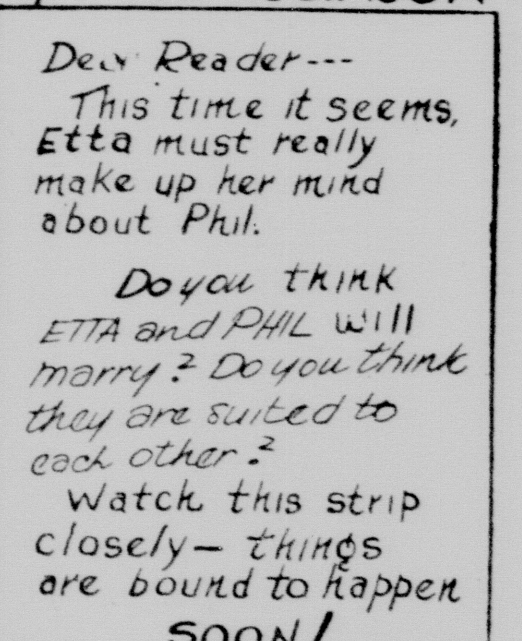 Dear Reader---
This time it seems,
Etta must really
make up her mind
about Phil.
Do you think
ETTA and PHIL will
marry? Do you think
they are suited to
each other?
Watch this strip
closely— things
are bound to happen
SOON!